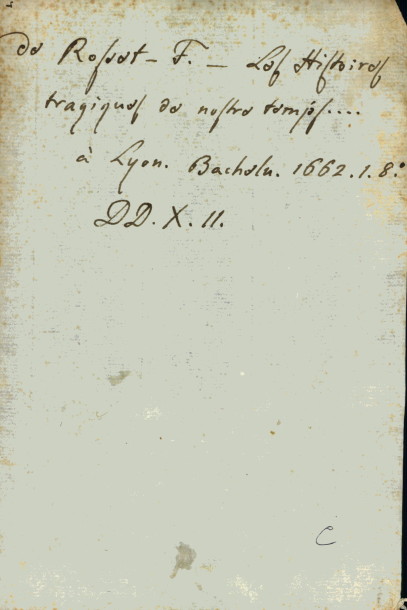 de Rosset - F. - Les Histoires
tragiques de nostre temps....
à Lyon. Bachelu. 1662. 1. 8.°
DD. X. 11.
C